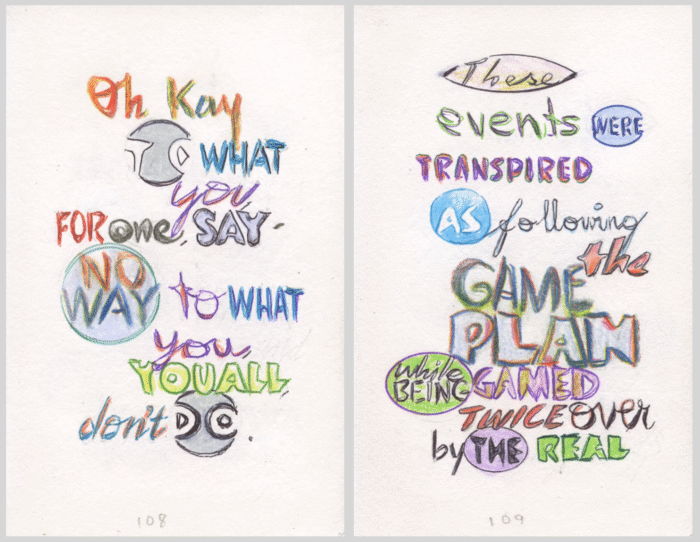 Oh Kay
TO WHAT
you,
FOR one, SAY -
NO
WAY to WHAT
you,
YOUALL,
don't DO.
108
These
events WERE
TRANSPIRED
AS following
the
GAME
PLAN
while
BEING GAMED
TWICE over
by THE REAL
109